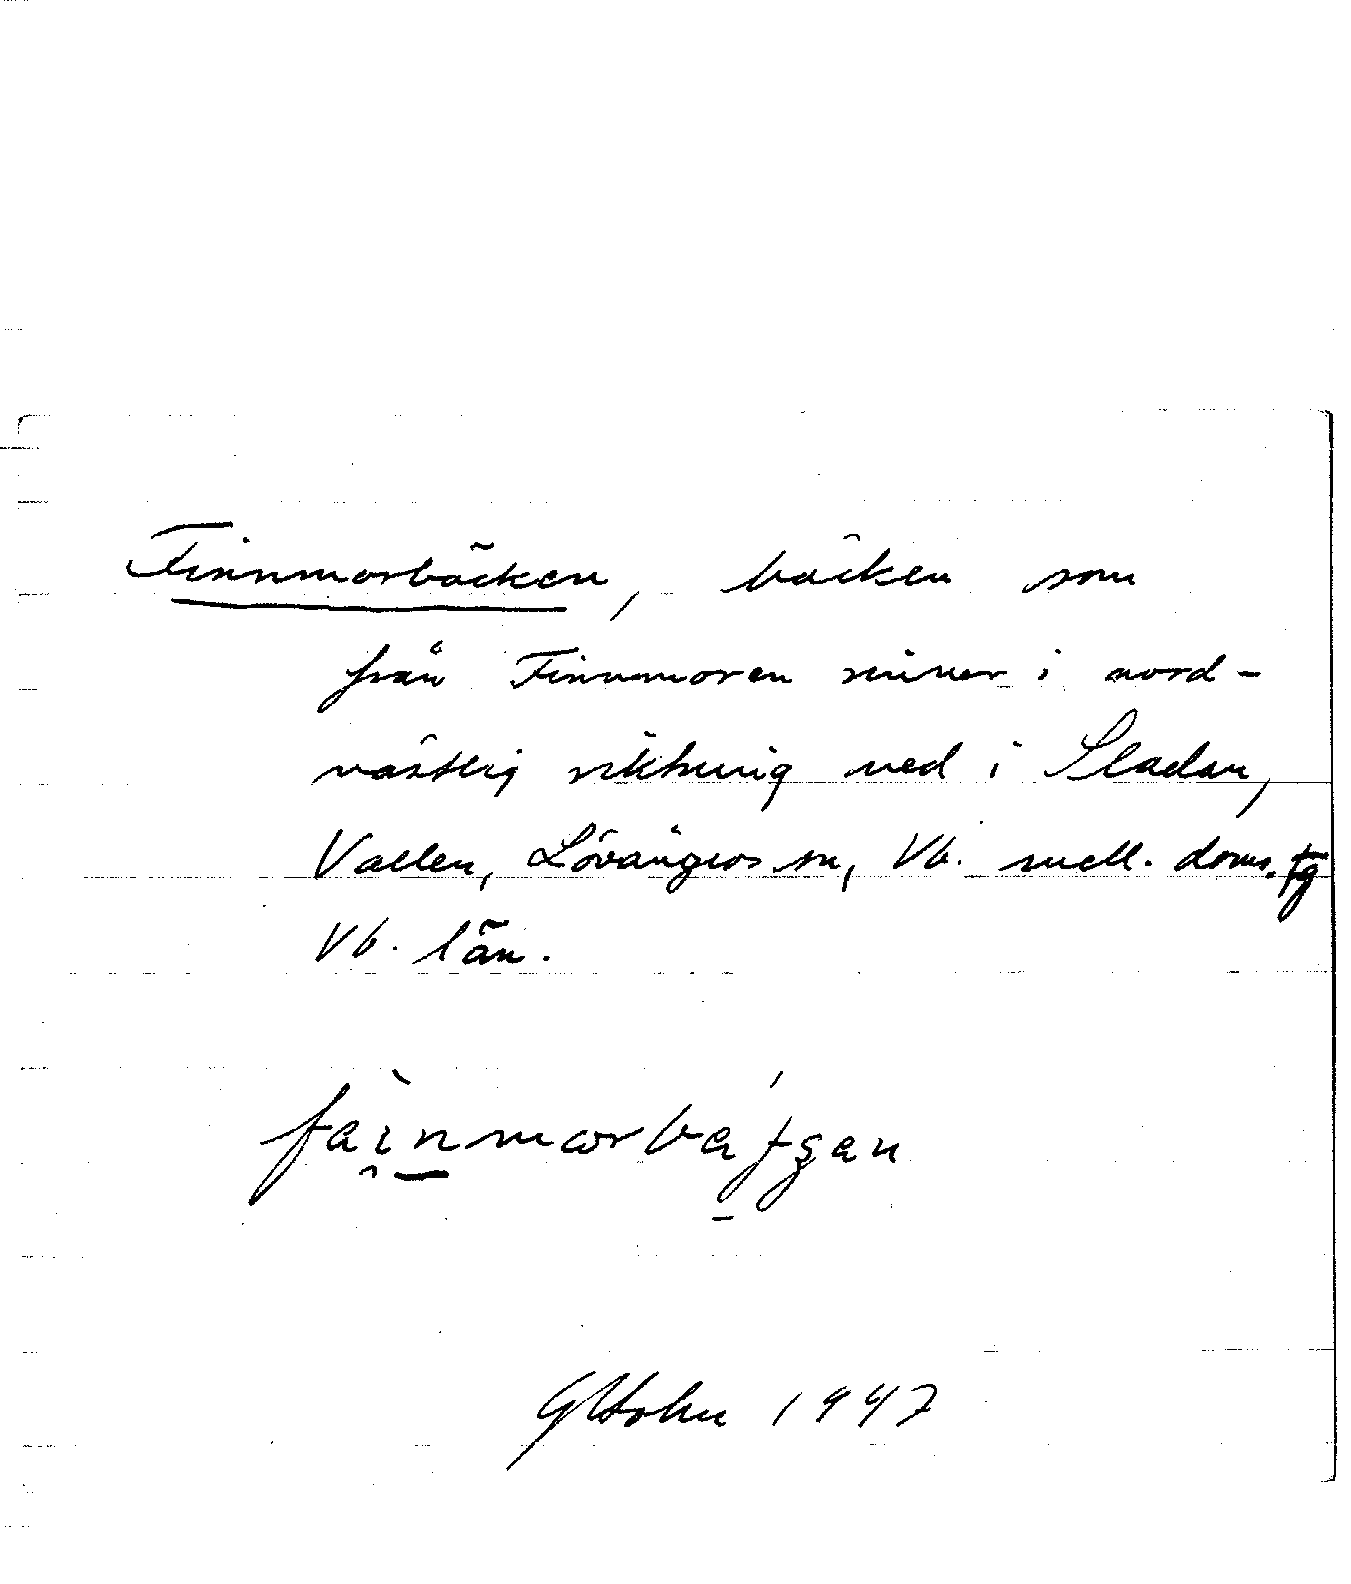 Finnmorbäcken, bäcken som
från Finnmoren rinner i nord-
västlig riktning ned i Sladan,
Vallen, Lövångers sn, Vb. mell. doms. tg
Vb. län.
1947